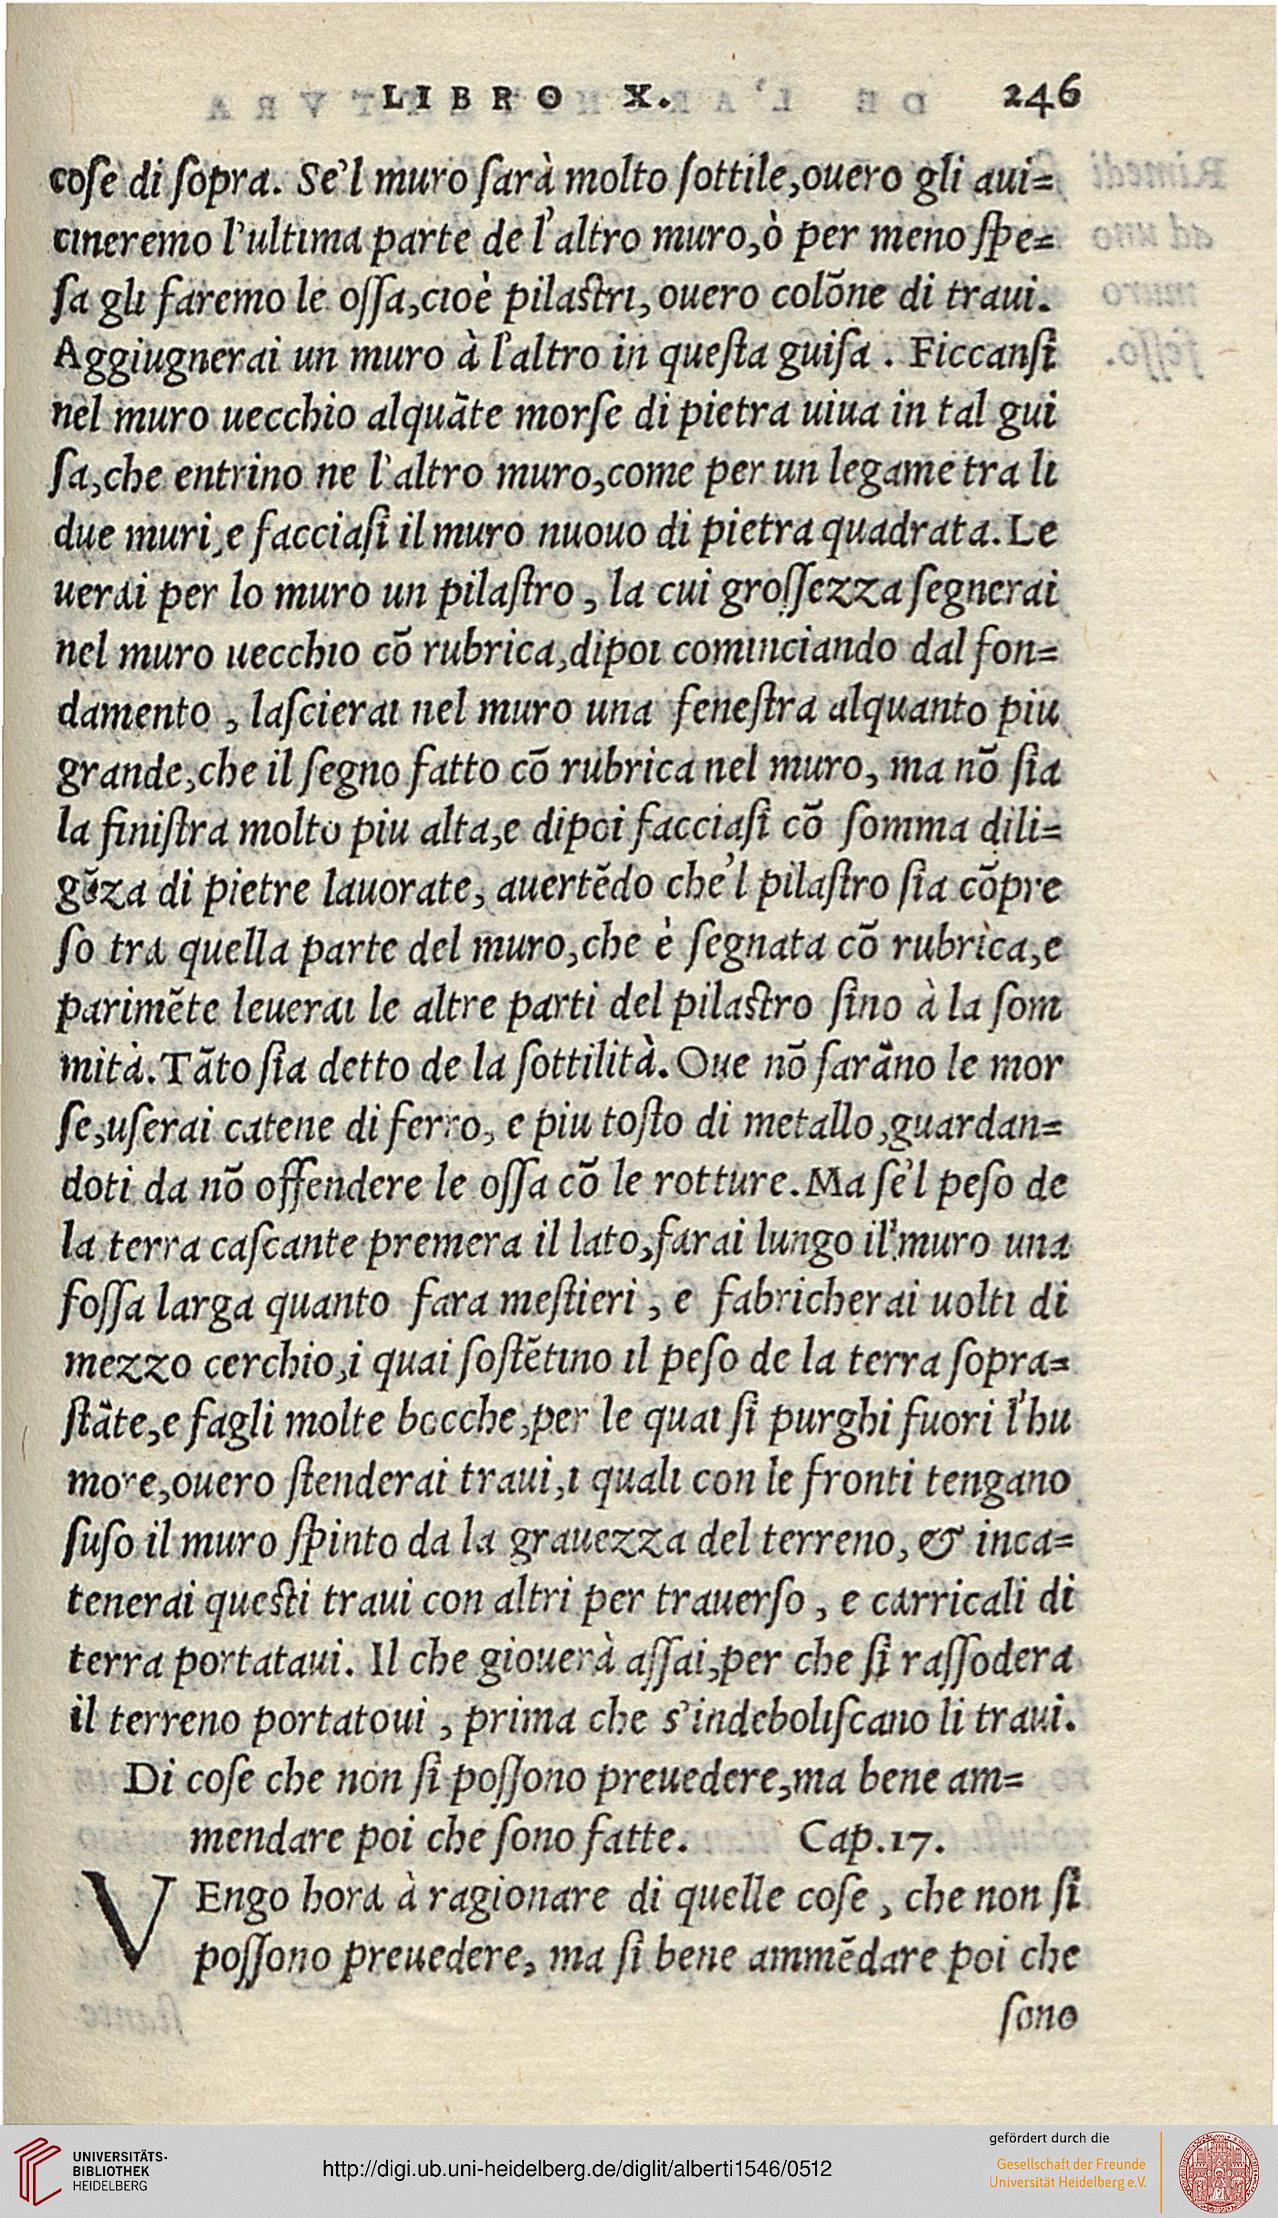 LIBRO X. 246
coſe di ſopra. Se'l muro ſarà molto ſottile,ouero gli aui=
cineremo l'ultima parte de l'altro muro,ò per meno ſpe=
ſa gli faremo le oſſa,cioè pilaſtri,ouero colõne di traui.
Aggiugnerai un muro à l'altro in queſta guiſa. Ficcanſi
nel muro uecchio alquãte morſe di pietra uiua in tal gui
ſa,che entrino ne l'altro muro,come per un legame tra li
due muri,e facciaſi il muro nuouo di pietra quadrata.Le
uerai per lo muro un pilaſtro, la cui groſſezza ſegnerai
nel muro uecchio cõ rubrica,dipoi cominciando dal fon=
damento, laſcierai nel muro una feneſtra alquanto piu
grande,che il ſegno fatto cõ rubrica nel muro, ma nõ ſia
la finiſtra molto piu alta,e dipoi facciaſi cõ ſomma dili=
gẽza di pietre lauorate, auertẽdo che'l pilaſtro ſia cõpre
ſo tra quella parte del muro,che è ſegnata cõ rubrìca,e
parimẽte leuerai le altre parti del pilaſtro ſino à la ſom
mità.Tãto ſia detto de la ſottilità.Oue nõ ſarãno le mor
ſe,uſerai catene di ferro, e piu toſto di metallo,guardan=
doti da nõ offendere le oſſa cõ le rotture.Ma ſe'l peſo de
la terra caſcante premera il lato,farai lungo il muro una
foſſa larga quanto fara meſtieri, e fabricherai uolti di
mezzo cerchio,i quai ſoſtẽtino il peſo de la terra ſopra=
ſtãte,e fagli molte bocche,per le quai ſi purghi fuori l'hu
more,ouero ſtenderai traui,i quali con le fronti tengano
ſuſo il muro ſpinto da la grauezza del terreno, & inca=
tenerai queſti traui con altri per trauerſo, e carricali di
terra portataui. Il che giouerà aſſai,per che ſi raſſodera
il terreno portatoui, prima che s'indeboliſcano li traui.
Di coſe che non ſi poſſono preuedere,ma bene am=
mendare poi che ſono fatte. Cap.17.
VEngo hora à ragionare di quelle coſe, che non ſi
poſſono preuedere, ma ſi bene ammẽdare poi che
ſono
UNIVERSITÄTS-
BIBLIOTHEK
HEIDELBERG
http://digi.ub.uni-heidelberg.de/diglit/alberti1546/0512
gefördert durch die
Gesellschaft der Freunde
Universität Heidelberg e.V.